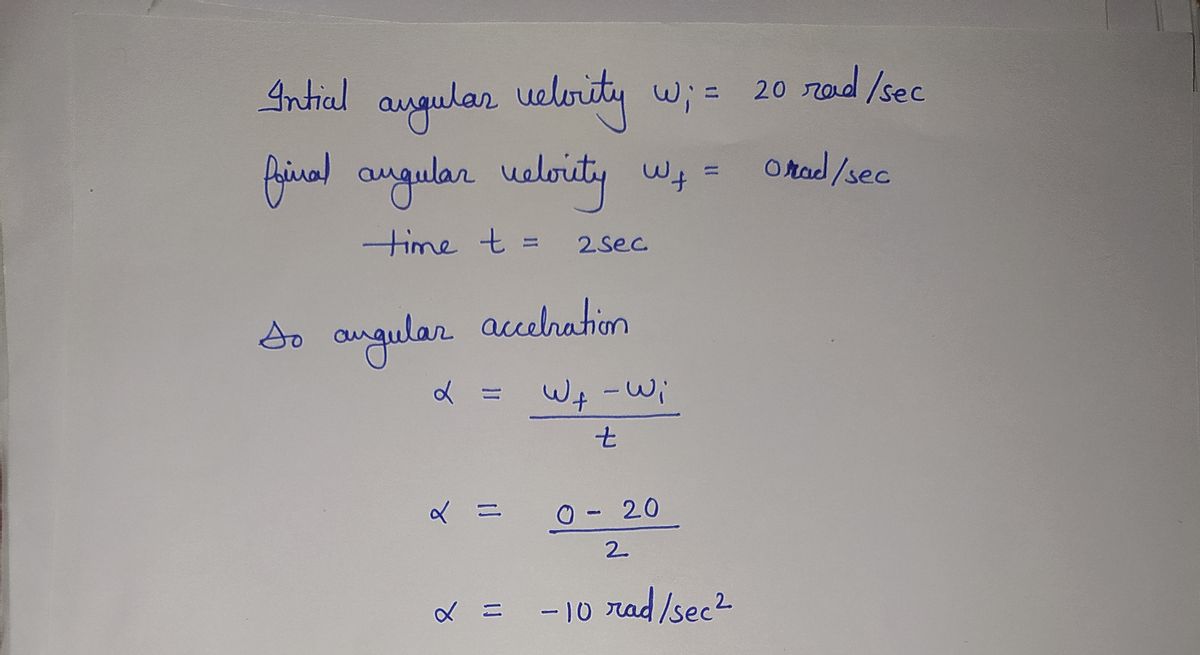 Intial angular velocity ωi = 20 rad/sec
final angular velocity ωf = 0 rad/sec
time t = 2 sec
So angular accelration
α = ωf - ωi
t
α = 0 - 20
2
α = -10 rad/sec²